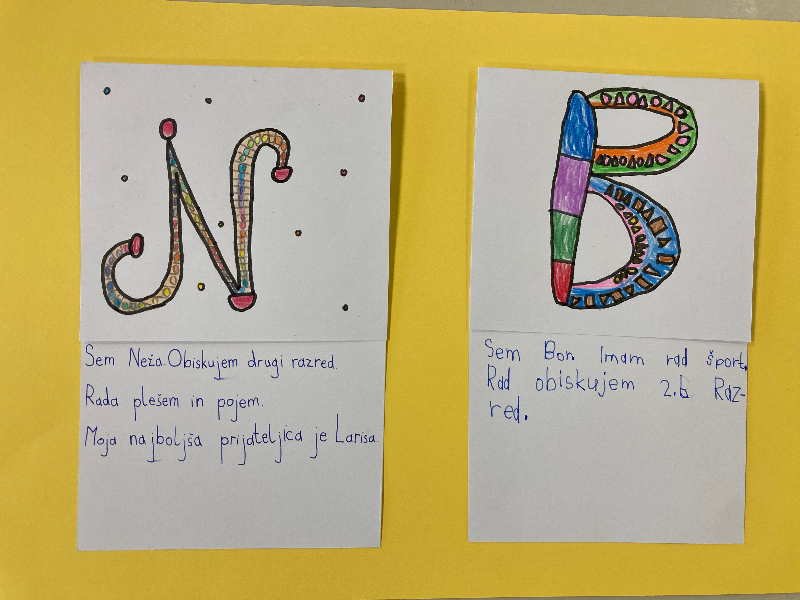 N
Sem Neža. Obiskujem drugi razred.
Rada plešem in pojem.
Moja najboljša prijateljica je Larisa.
B
Sem Bor. Imam rad šport.
Rad obiskujem 2.b Raz-
red.